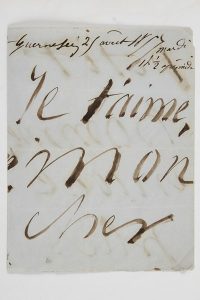 Guernesey 25 août
mardi
1h ½ après midi
Je t'aime,
mon
cher